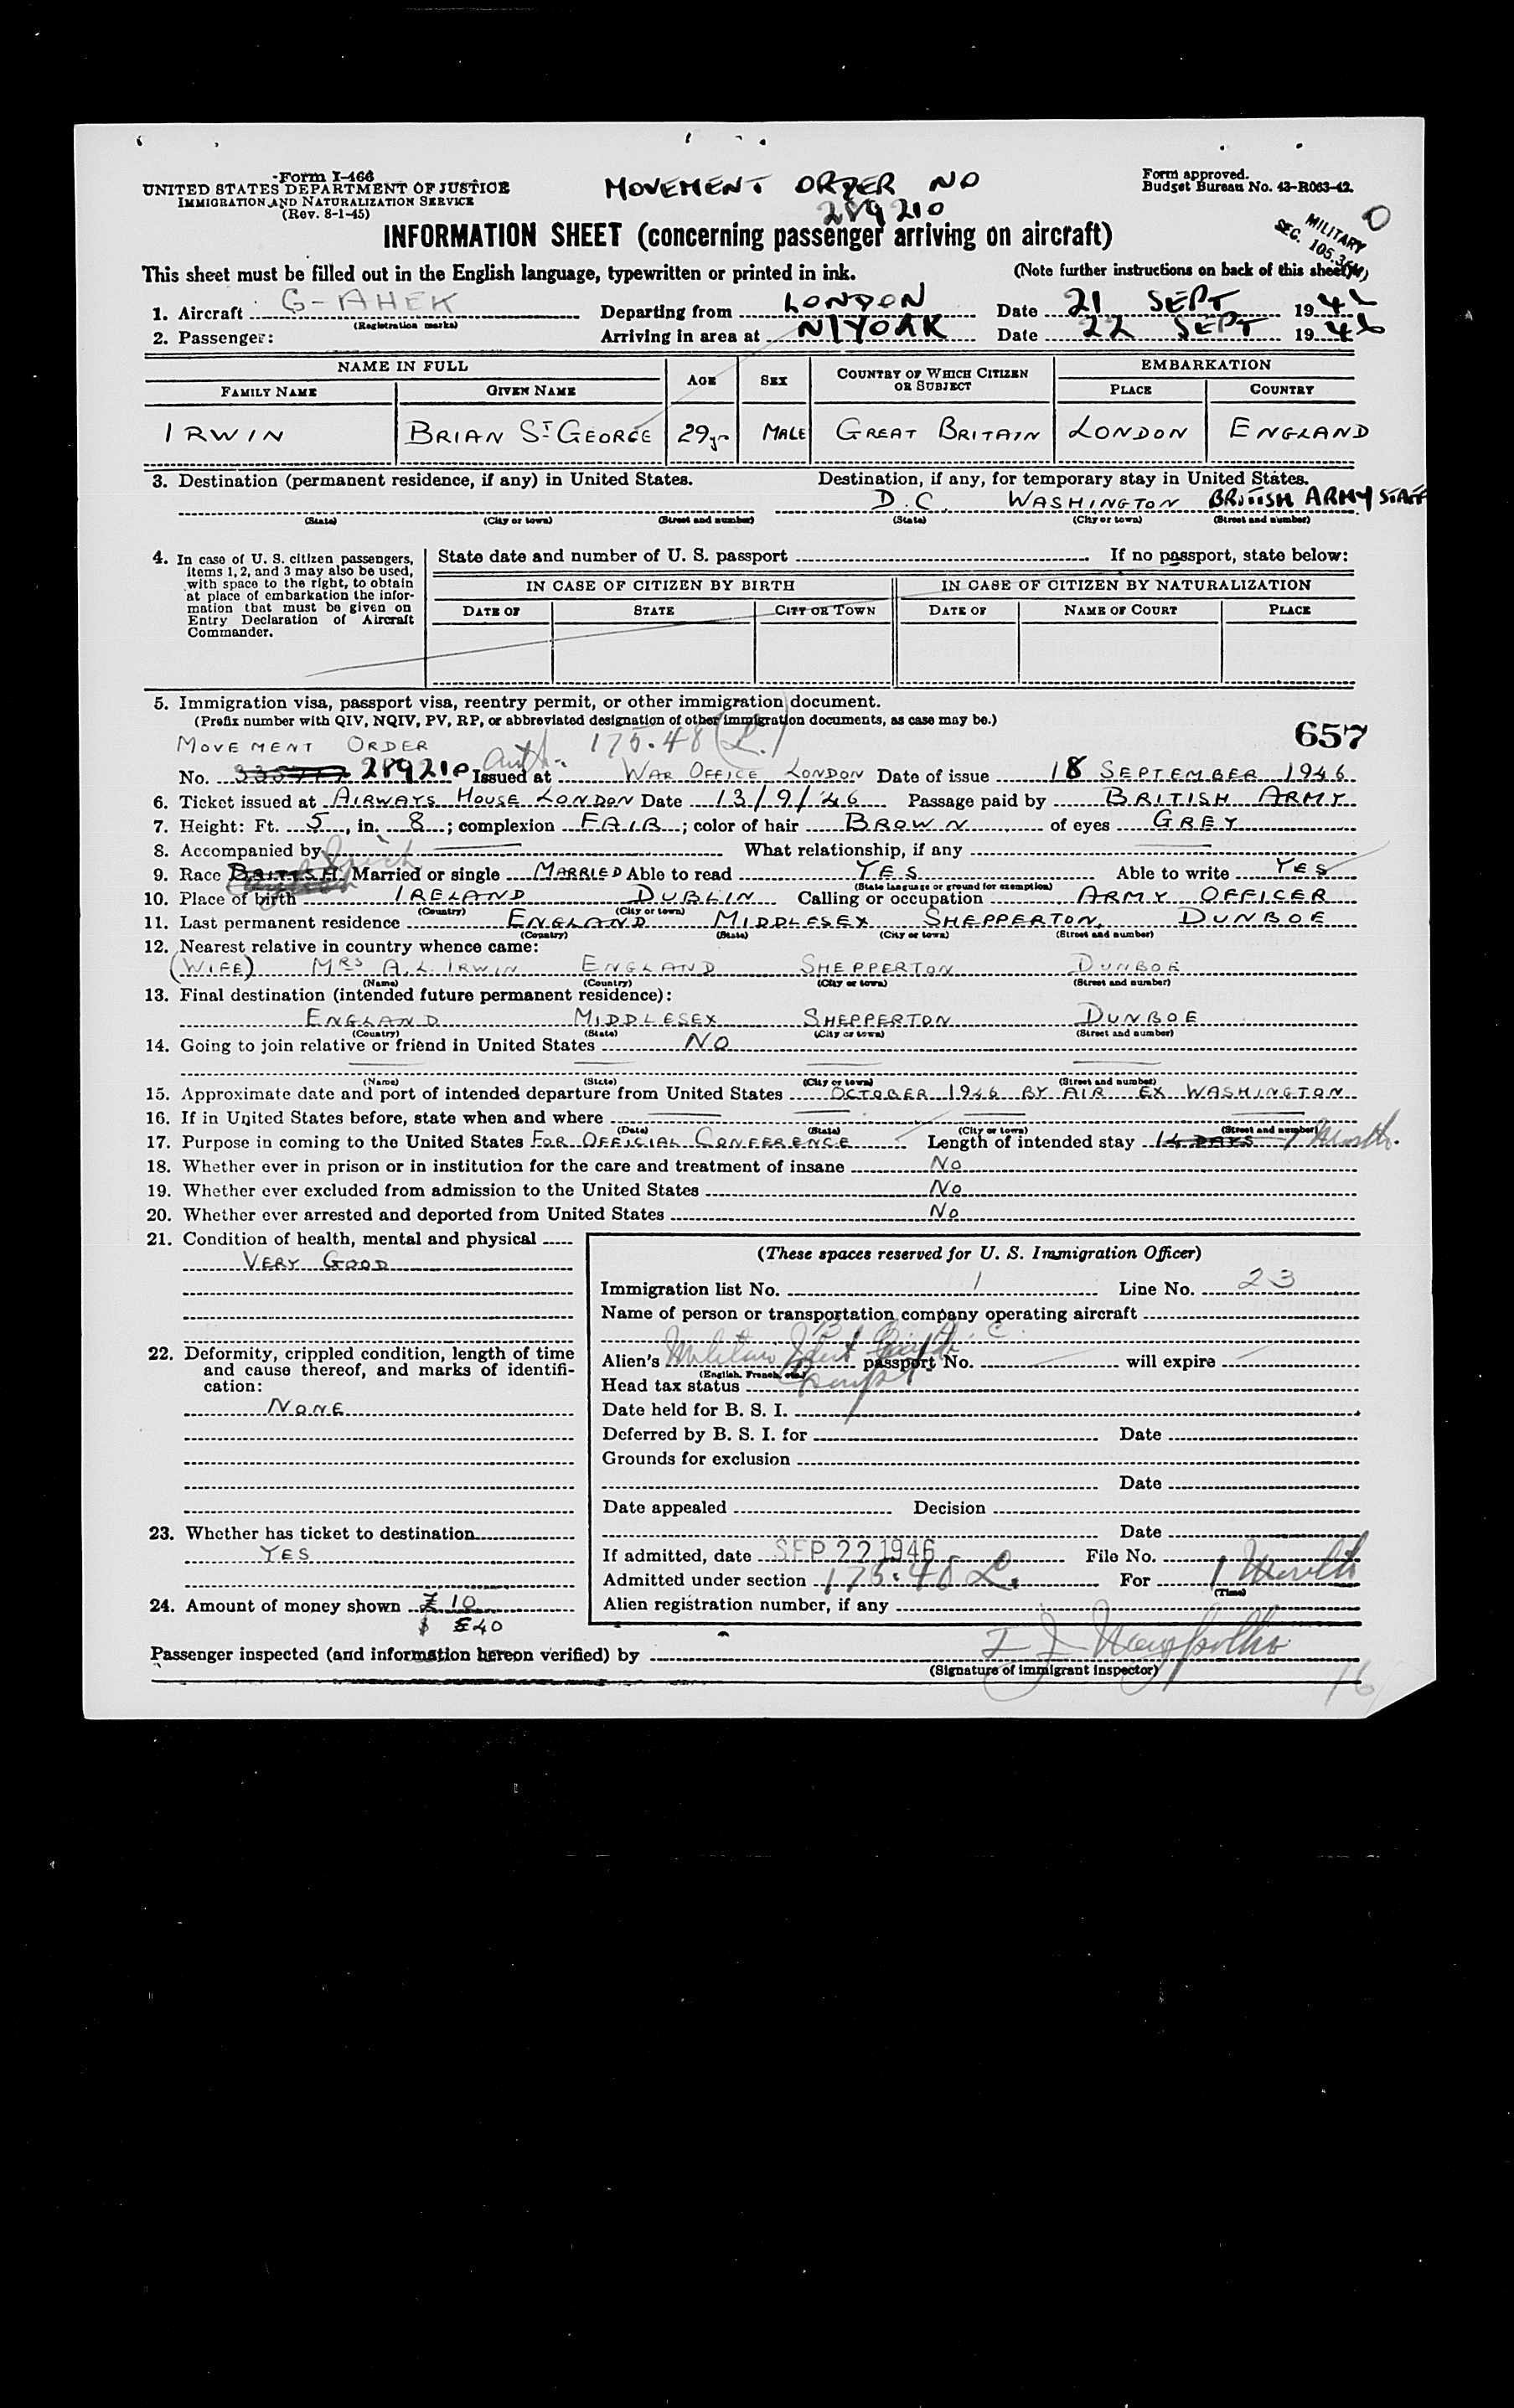 Form I-466
UNITED STATES DEPARTMENT OF JUSTICE
IMMIGRATION AND NATURALIZATION SERVICE
(Rev. 8-1-45)
MOVEMENT ORDER NO
289210
Form approved.
Budget Bureau No. 43-R063-42.
MILITARY
SEC. 105.3
INFORMATION SHEET (concerning passenger arriving on aircraft)
This sheet must be filled out in the English language, typewritten or printed in ink. (Note further instructions on back of this sheet)
1. Aircraft G-AHEK Departing from LONDON Date 21 SEPT 1946
(Registration marks)
2. Passenger: Arriving in area at N/YORK Date 22 SEPT 1946
NAME IN FULL AGE SEX COUNTRY OF WHICH CITIZEN OR SUBJECT EMBARKATION
FAMILY NAME GIVEN NAME PLACE COUNTRY
IRWIN BRIAN ST GEORGE 29yr MALE GREAT BRITAIN LONDON ENGLAND
3. Destination (permanent residence, if any) in United States. Destination, if any, for temporary stay in United States.
D.C. WASHINGTON BRITISH ARMY STAFF
(State) (City or town) (Street and number) (State) (City or town) (Street and number)
4. In case of U. S. citizen passengers, items 1, 2, and 3 may also be used, with space to the right, to obtain at place of embarkation the information that must be given on Entry Declaration of Aircraft Commander.
State date and number of U. S. passport If no passport, state below:
IN CASE OF CITIZEN BY BIRTH IN CASE OF CITIZEN BY NATURALIZATION
DATE OF STATE CITY OR TOWN DATE OF NAME OF COURT PLACE
5. Immigration visa, passport visa, reentry permit, or other immigration document.
(Prefix number with QIV, NQIV, PV, RP, or abbreviated designation of other immigration documents, as case may be.)
657
MOVEMENT ORDER Auth. 175.48 (L.)
No. 289210 Issued at WAR OFFICE LONDON Date of issue 18 SEPTEMBER 1946
6. Ticket issued at AIRWAYS HOUSE LONDON Date 13/9/46 Passage paid by BRITISH ARMY
7. Height: Ft. 5, in. 8; complexion FAIR; color of hair BROWN of eyes GREY
8. Accompanied by What relationship, if any
Irish
9. Race BRITISH Married or single MARRIED Able to read YES Able to write YES
(State language or ground for exemption)
10. Place of birth IRELAND DUBLIN Calling or occupation ARMY OFFICER
(Country) (City or town)
11. Last permanent residence ENGLAND MIDDLESEX SHEPPERTON, DUNBOE
(Country) (State) (City or town) (Street and number)
12. Nearest relative in country whence came:
(WIFE) MRS A. L. IRWIN ENGLAND SHEPPERTON DUNBOE
(Name) (Country) (City or town) (Street and number)
13. Final destination (intended future permanent residence):
ENGLAND MIDDLESEX SHEPPERTON DUNBOE
(Country) (State) (City or town) (Street and number)
14. Going to join relative or friend in United States NO
(Name) (State) (City or town) (Street and number)
15. Approximate date and port of intended departure from United States OCTOBER 1946 BY AIR EX WASHINGTON
16. If in United States before, state when and where
(Date) (State) (City or town) (Street and number)
17. Purpose in coming to the United States FOR OFFICIAL CONFERENCE Length of intended stay 14 DAYS 1 Month.
18. Whether ever in prison or in institution for the care and treatment of insane NO
19. Whether ever excluded from admission to the United States NO
20. Whether ever arrested and deported from United States NO
21. Condition of health, mental and physical
VERY GOOD
22. Deformity, crippled condition, length of time and cause thereof, and marks of identification:
NONE
23. Whether has ticket to destination
YES
24. Amount of money shown £ 10
$ 40
(These spaces reserved for U. S. Immigration Officer)
Immigration list No. 1 Line No. 23
Name of person or transportation company operating aircraft
Alien's Military Ident passport No. will expire
(English, French, etc.)
Head tax status Exempt
Date held for B. S. I.
Deferred by B. S. I. for Date
Grounds for exclusion
Date
Date appealed Decision
Date
If admitted, date SEP 22 1946 File No.
Admitted under section 175.48 L. For 1 Month
(Time)
Alien registration number, if any
Passenger inspected (and information hereon verified) by
(Signature of immigrant inspector)
16